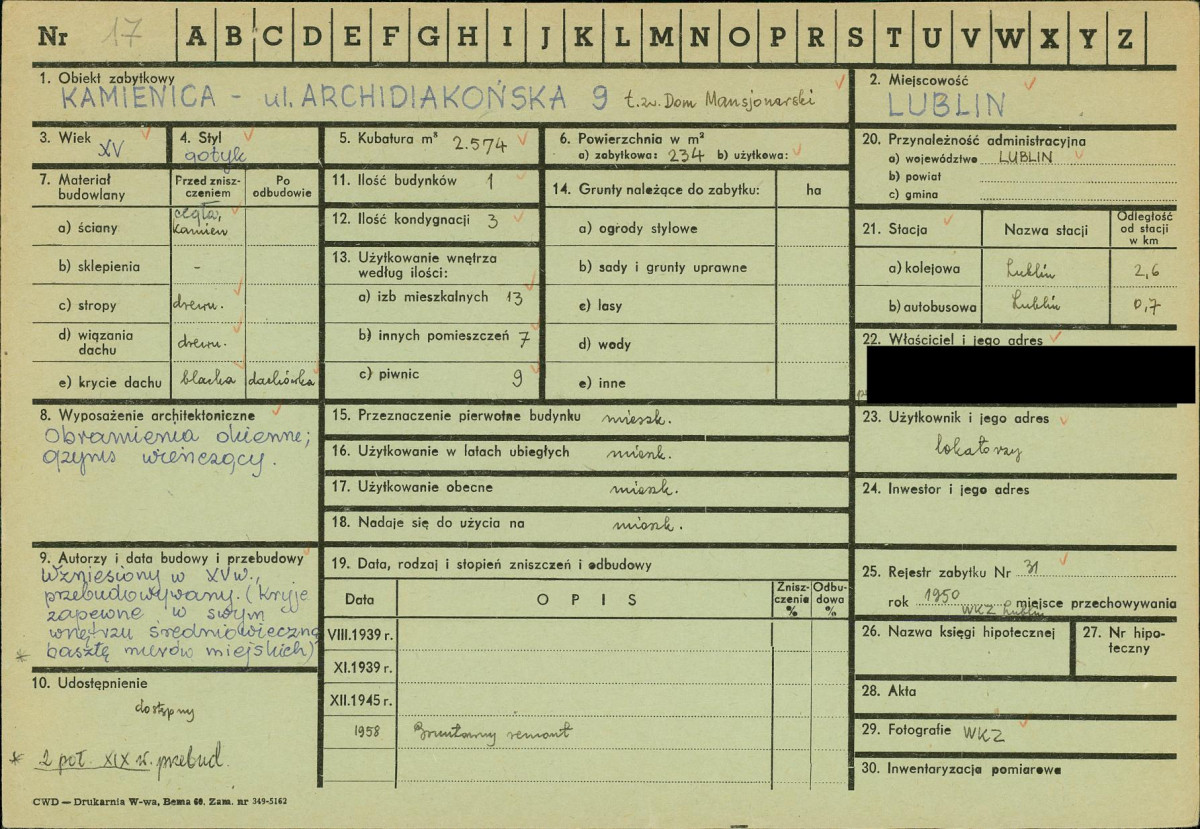 Nr 17 A B C D E F G H I J K L M N O P R S T U V W X Y Z
1. Obiekt zabytkowy
KAMIENICA - ul. ARCHIDIAKOŃSKA 9 t.zw. Dom Mansjonarski
2. Miejscowość
LUBLIN
3. Wiek
XV
4. Styl
gotyk
5. Kubatura m³ 2.574
6. Powierzchnia w m²
a) zabytkowa: 234 b) użytkowa:
7. Materiał budowlany
Przed zniszczeniem
Po odbudowie
a) ściany cegła, kamień
b) sklepienia -
c) stropy drewn.
d) wiązania dachu drewn.
e) krycie dachu blacha dachówka
8. Wyposażenie architektoniczne
Obramienia okienne;
gzyms wieńczący.
9. Autorzy i data budowy i przebudowy
Wzniesiony w XVw.,
przebudowywany. (Kryje
zapewne w swym
wnętrzu średniowieczną
* basztę murów miejskich)
10. Udostępnienie
dostępny
* 2 poł. XIX w. przebud.
CWD — Drukarnia W-wa, Bema 60. Zam. nr 349-5162
11. Ilość budynków 1
12. Ilość kondygnacji 3
13. Użytkowanie wnętrza
według ilości:
a) izb mieszkalnych 13
b) innych pomieszczeń 7
c) piwnic 9
14. Grunty należące do zabytku: ha
a) ogrody stylowe
b) sady i grunty uprawne
c) lasy
d) wody
e) inne
15. Przeznaczenie pierwotne budynku mieszk.
16. Użytkowanie w latach ubiegłych mieszk.
17. Użytkowanie obecne mieszk.
18. Nadaje się do użycia na mieszk.
19. Data, rodzaj i stopień zniszczeń i odbudowy
Data OPIS Zniszczenie % Odbudowa %
VIII.1939 r.
XI.1939 r.
XII.1945 r.
1958 Gruntowny remont
20. Przynależność administracyjna
a) województwo LUBLIN
b) powiat
c) gmina
21. Stacja Nazwa stacji Odległość od stacji w km
a) kolejowa Lublin 2,6
b) autobusowa Lublin 0,7
22. Właściciel i jego adres
23. Użytkownik i jego adres
lokatorzy
24. Inwestor i jego adres
25. Rejestr zabytku Nr 31
rok 1950 miejsce przechowywania
WKZ Lublin
26. Nazwa księgi hipotecznej
27. Nr hipoteczny
28. Akta
29. Fotografie WKZ
30. Inwentaryzacja pomiarowa